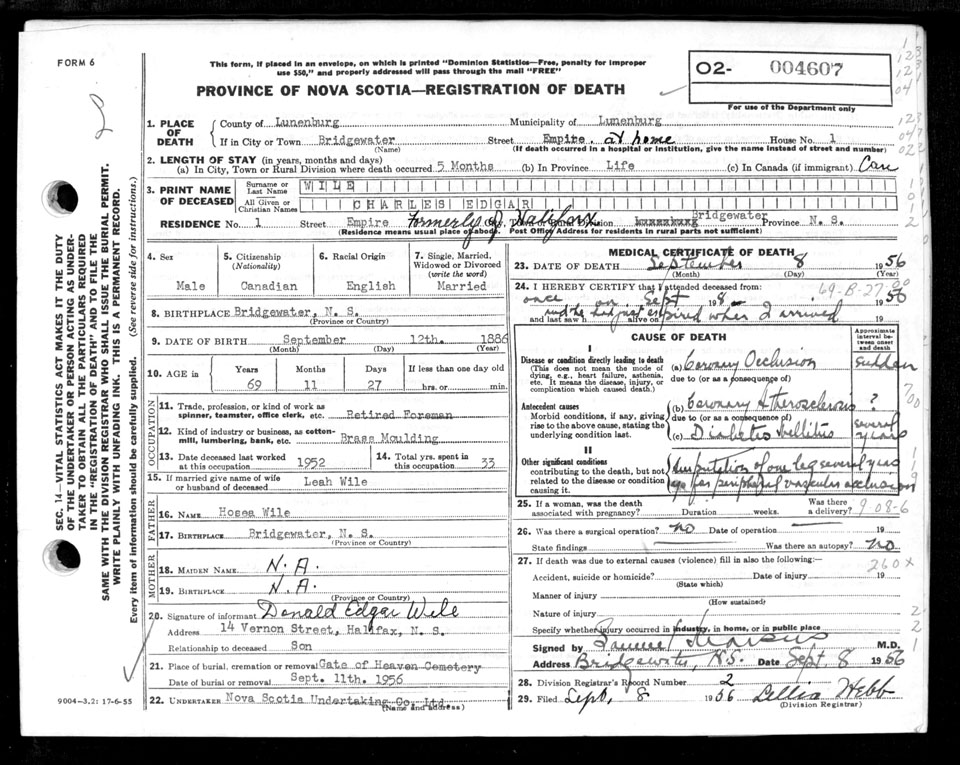 FORM 6
This form, if placed in an envelope, on which is printed "Dominion Statistics—Free, penalty for improper
use $50," and properly addressed will pass through the mail "FREE"
PROVINCE OF NOVA SCOTIA—REGISTRATION OF DEATH
02- 004607
For use of the Department only
1. PLACE OF DEATH
County of Lunenburg Municipality of Lunenburg
If in City or Town Bridgewater Street Empire. at home House No. 1
(Name) (If death occurred in a hospital or institution, give the name instead of street and number)
2. LENGTH OF STAY (in years, months and days)
(a) In City, Town or Rural Division where death occurred 5 Months (b) In Province Life (c) In Canada (if immigrant) Can
3. PRINT NAME OF DECEASED
Surname or Last Name WILE
All Given or Christian Names CHARLES EDGAR
RESIDENCE No. 1 Street Empire Formerly of Halifax Bridgewater Province N. S.
(Residence means usual place of abode. Post Office Address for residents in rural parts not sufficient)
4. Sex Male
5. Citizenship (Nationality) Canadian
6. Racial Origin English
7. Single, Married, Widowed or Divorced (write the word) Married
8. BIRTHPLACE Bridgewater, N. S.
(Province or Country)
9. DATE OF BIRTH September 12th. 1886
(Month) (Day) (Year)
10. AGE in Years 69 Months 11 Days 27 If less than one day old hrs. or min.
OCCUPATION
11. Trade, profession, or kind of work as spinner, teamster, office clerk, etc. Retired Foreman
12. Kind of industry or business, as cotton-mill, lumbering, bank, etc. Brass Moulding
13. Date deceased last worked at this occupation 1952
14. Total yrs. spent in this occupation 33
15. If married give name of wife or husband of deceased Leah Wile
FATHER
16. NAME Hosea Wile
17. BIRTHPLACE Bridgewater, N. S.
(Province or Country)
MOTHER
18. MAIDEN NAME N. A.
19. BIRTHPLACE N. A.
(Province or Country)
20. Signature of informant Donald Edgar Wile
Address 14 Vernon Street, Halifax, N. S.
Relationship to deceased Son
21. Place of burial, cremation or removal Gate of Heaven Cemetery
Date of burial or removal Sept. 11th. 1956
22. UNDERTAKER Nova Scotia Undertaking Co. Ltd.
(Name and address)
9004-3.2: 17-6-55
MEDICAL CERTIFICATE OF DEATH
23. DATE OF DEATH September 8 1956
(Month) (Day) (Year)
24. I HEREBY CERTIFY that I attended deceased from:
69-B-27-00
once on Sept 8 1956
and last saw h alive on 19
and he had just expired when I arrived
CAUSE OF DEATH
Approximate interval between onset and death
I
Disease or condition directly leading to death
(This does not mean the mode of dying, e.g., heart failure, asthenia, etc. It means the disease, injury, or complication which caused death.)
(a) Coronary Occlusion Sudden
due to (or as a consequence of)
Antecedent causes
Morbid conditions, if any, giving rise to the above cause, stating the underlying condition last.
(b) Coronary Atherosclerosis ?
due to (or as a consequence of)
(c) Diabetes Mellitus several years
II
Other significant conditions
contributing to the death, but not related to the disease or condition causing it.
Amputation of one leg several years
ago for peripheral vascular occlusion
25. If a woman, was the death associated with pregnancy? Duration weeks. Was there a delivery?
9-08-6
26. Was there a surgical operation? no Date of operation 19
State findings Was there an autopsy? no
27. If death was due to external causes (violence) fill in also the following:—
260X
Accident, suicide or homicide? Date of injury 19
(State which)
Manner of injury
(How sustained)
Nature of injury
Specify whether injury occurred in industry, in home, or in public place
Signed by M.D.
Address Bridgewater, N.S. Date Sept. 8 1956
28. Division Registrar's Record Number 2
29. Filed Sept. 8 1956 Webb
(Division Registrar)
SEC. 14—VITAL STATISTICS ACT MAKES IT THE DUTY
OF THE UNDERTAKER OR PERSON ACTING AS UNDER-
TAKER TO OBTAIN ALL THE PARTICULARS REQUIRED
IN THE "REGISTRATION OF DEATH" AND TO FILE THE
SAME WITH THE DIVISION REGISTRAR WHO SHALL ISSUE THE BURIAL PERMIT.
WRITE PLAINLY WITH UNFADING INK. THIS IS A PERMANENT RECORD.
Every item of information should be carefully supplied. (See reverse side for instructions.)